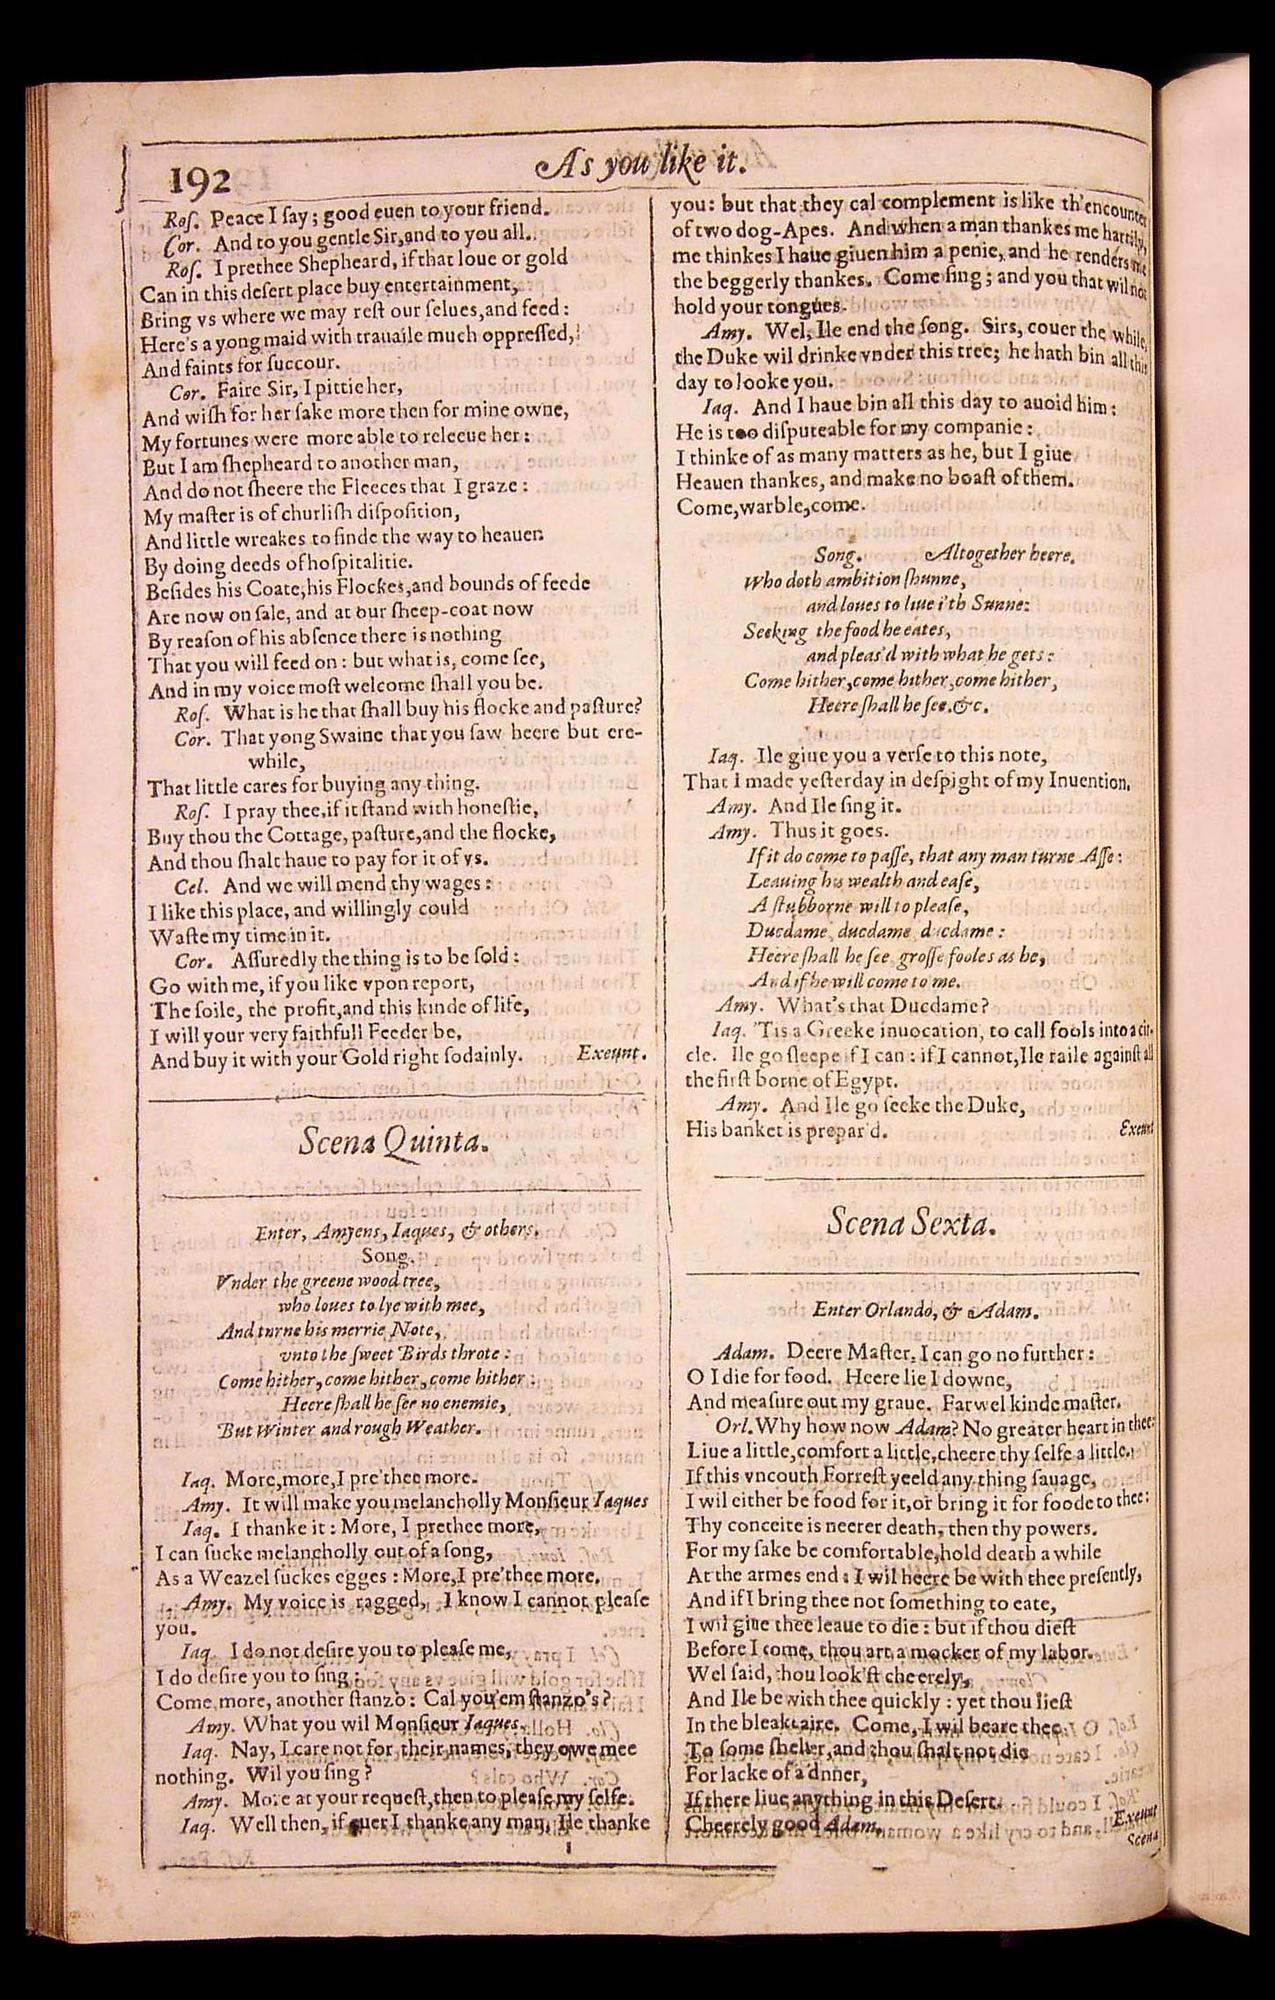 192
As you like it.
Roſ. Peace I ſay; good euen to your friend.
Cor. And to you gentle Sir, and to you all.
Roſ. I prethee Shepheard, if that loue or gold
Can in this deſert place buy entertainment,
Bring vs where we may reſt our ſelues, and feed:
Here's a yong maid with trauaile much oppreſſed,
And faints for ſuccour.
Cor. Faire Sir, I pittie her,
And wiſh for her ſake more then for mine owne,
My fortunes were more able to releeue her:
But I am ſhepheard to another man,
And do not ſheere the Fleeces that I graze:
My maſter is of churliſh diſpoſition,
And little wreakes to finde the way to heauen
By doing deeds of hoſpitalitie.
Beſides his Coate, his Flockes, and bounds of feede
Are now on ſale, and at our ſheep-coat now
By reaſon of his abſence there is nothing
That you will feed on: but what is, come ſee,
And in my voice moſt welcome ſhall you be.
Roſ. What is he that ſhall buy his flocke and paſture?
Cor. That yong Swaine that you ſaw heere but ere-
while,
That little cares for buying any thing.
Roſ. I pray thee, if it ſtand with honeſtie,
Buy thou the Cottage, paſture, and the flocke,
And thou ſhalt haue to pay for it of vs.
Cel. And we will mend thy wages:
I like this place, and willingly could
Waſte my time in it.
Cor. Aſſuredly the thing is to be ſold:
Go with me, if you like vpon report,
The ſoile, the profit, and this kinde of life,
I will your very faithfull Feeder be,
And buy it with your Gold right ſodainly. Exeunt.
Scena Quinta.
Enter, Amyens, Iaques, & others.
Song.
Vnder the greene wood tree,
who loues to lye with mee,
And turne his merrie Note,
vnto the ſweet Birds throte:
Come hither, come hither, come hither:
Heere ſhall he ſee no enemie,
But Winter and rough Weather.
Iaq. More, more, I pre'thee more.
Amy. It will make you melancholly Monſieur Iaques
Iaq. I thanke it: More, I prethee more,
I can ſucke melancholly out of a ſong,
As a Weazel ſuckes egges: More, I pre'thee more.
Amy. My voice is ragged, I know I cannot pleaſe
you.
Iaq. I do not deſire you to pleaſe me,
I do deſire you to ſing:
Come, more, another ſtanzo: Cal you'em ſtanzo's?
Amy. What you wil Monſieur Iaques.
Iaq. Nay, I care not for their names, they owe mee
nothing. Wil you ſing?
Amy. More at your requeſt, then to pleaſe my ſelfe.
Iaq. Well then, if euer I thanke any man, Ile thanke
you: but that they cal complement is like th'encounter
of two dog-Apes. And when a man thankes me hartily,
me thinkes I haue giuen him a penie, and he renders me
the beggerly thankes. Come ſing; and you that wil not
hold your tongues.
Amy. Wel, Ile end the ſong. Sirs, couer the while,
the Duke wil drinke vnder this tree; he hath bin all this
day to looke you.
Iaq. And I haue bin all this day to auoid him:
He is too diſputeable for my companie:
I thinke of as many matters as he, but I giue
Heauen thankes, and make no boaſt of them.
Come, warble, come.
Song. Altogether heere.
Who doth ambition ſhunne,
and loues to liue i'th Sunne:
Seeking the food he eates,
and pleas'd with what he gets:
Come hither, come hither, come hither,
Heere ſhall he ſee. &c.
Iaq. Ile giue you a verſe to this note,
That I made yeſterday in deſpight of my Inuention.
Amy. And Ile ſing it.
Amy. Thus it goes.
If it do come to paſſe, that any man turne Aſſe:
Leauing his wealth and eaſe,
A ſtubborne will to pleaſe,
Ducdame, ducdame, ducdame:
Heere ſhall he ſee groſſe fooles as he,
And if he will come to me.
Amy. What's that Ducdame?
Iaq. 'Tis a Greeke inuocation, to call fools into a cir-
cle. Ile go ſleepe if I can: if I cannot, Ile raile againſt all
the firſt borne of Egypt.
Amy. And Ile go ſeeke the Duke,
His banket is prepar'd. Exeunt
Scena Sexta.
Enter Orlando, & Adam.
Adam. Deere Maſter, I can go no further:
O I die for food. Heere lie I downe,
And meaſure out my graue. Farwel kinde maſter.
Orl. Why how now Adam? No greater heart in thee:
Liue a little, comfort a little, cheere thy ſelfe a little.
If this vncouth Forreſt yeeld any thing ſauage,
I wil either be food for it, or bring it for foode to thee:
Thy conceite is neerer death, then thy powers.
For my ſake be comfortable, hold death a while
At the armes end: I wil heere be with thee preſently,
And if I bring thee not ſomething to eate,
I wil giue thee leaue to die: but if thou dieſt
Before I come, thou art a mocker of my labor.
Wel ſaid, thou look'ſt cheerely,
And Ile be with thee quickly: yet thou lieſt
In the bleake aire. Come, I wil beare thee
To ſome ſhelter, and thou ſhalt not die
For lacke of a dinner,
If there liue any thing in this Deſert.
Cheerely good Adam. Exeunt
Scena